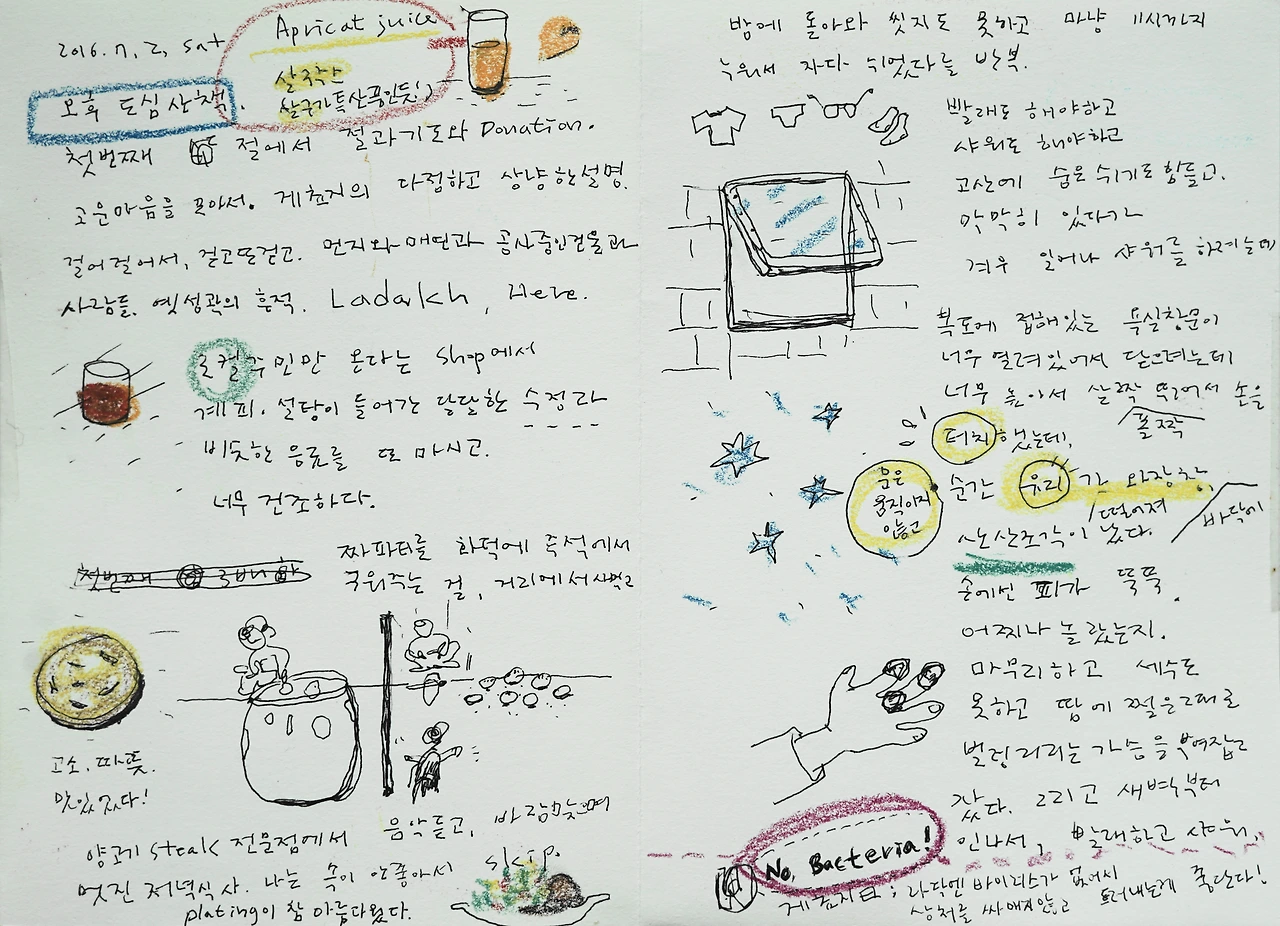 2016. 7, 2, sat
Apricat juice
살구주스
(살구가 특산품인듯!)
오후 도심 산책.
첫번째 절에서 절과 기도와 Donation.
고운마음을 모아서. 게촉지의 다정하고 상냥한 설명.
걸어걸어서, 걷고또걷고. 먼지와 매연과 공사중인건물과
사람들. 옛성곽의 흔적. Ladakh, Here.
로컬주민만 온다는 shop에서
계피. 설탕이 들어간 달달한 수정과
비슷한 음료를 또 마시고.
너무 건조하다.
짜파티를 화덕에 즉석에서
구워주는 걸, 거리에서 사먹고
첫번째
고소. 따뜻.
맛있었다!
양고기 steak 전문점에서 음악듣고, 바람맞으며
멋진 저녁식사. 나는 속이 안좋아서 skip.
plating이 참 아름다웠다.
밤에 돌아와 씻지도 못하고 마냥 11시까지
누워서 자다 쉬었다를 반복.
빨래도 해야하고
샤워도 해야하고
고산에 숨은 쉬기도 힘들고.
막막히 있다가
겨우 일어나 샤워를 하려는데
복도에 접해있는 욕실창문이
너무 열려있어서 닫으려는데
너무 높아서 살짝 뛰어서 손을
폴짝
터치했는데,
문은
움직이지
않고
순간 유리가 와장창,
떨어져
바닥에
산산조각이 났다.
손에선 피가 뚝뚝.
어찌나 놀랐는지.
마무리하고 세수도
못하고 땀에 쩔은그대로
벌렁거리는 가슴을 부여잡고
잤다. 그리고 새벽부터
인나서, 빨래하고 샤워,
No, Bacteria!
게촉지曰; 라닥엔 바이러스가 없어서
상처를 싸매지않고 드러내는게 좋단다!